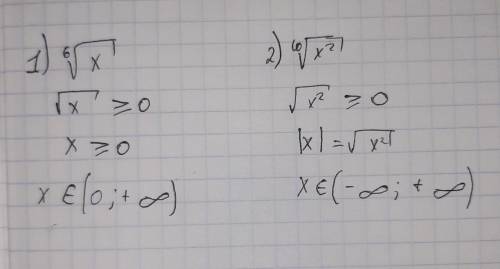 1) ⁶√x
√x ≥ 0
x ≥ 0
x ∈ (0; +∞)
2) ⁶√x²
√x² ≥ 0
|x| = √x²
x ∈ (-∞; +∞)